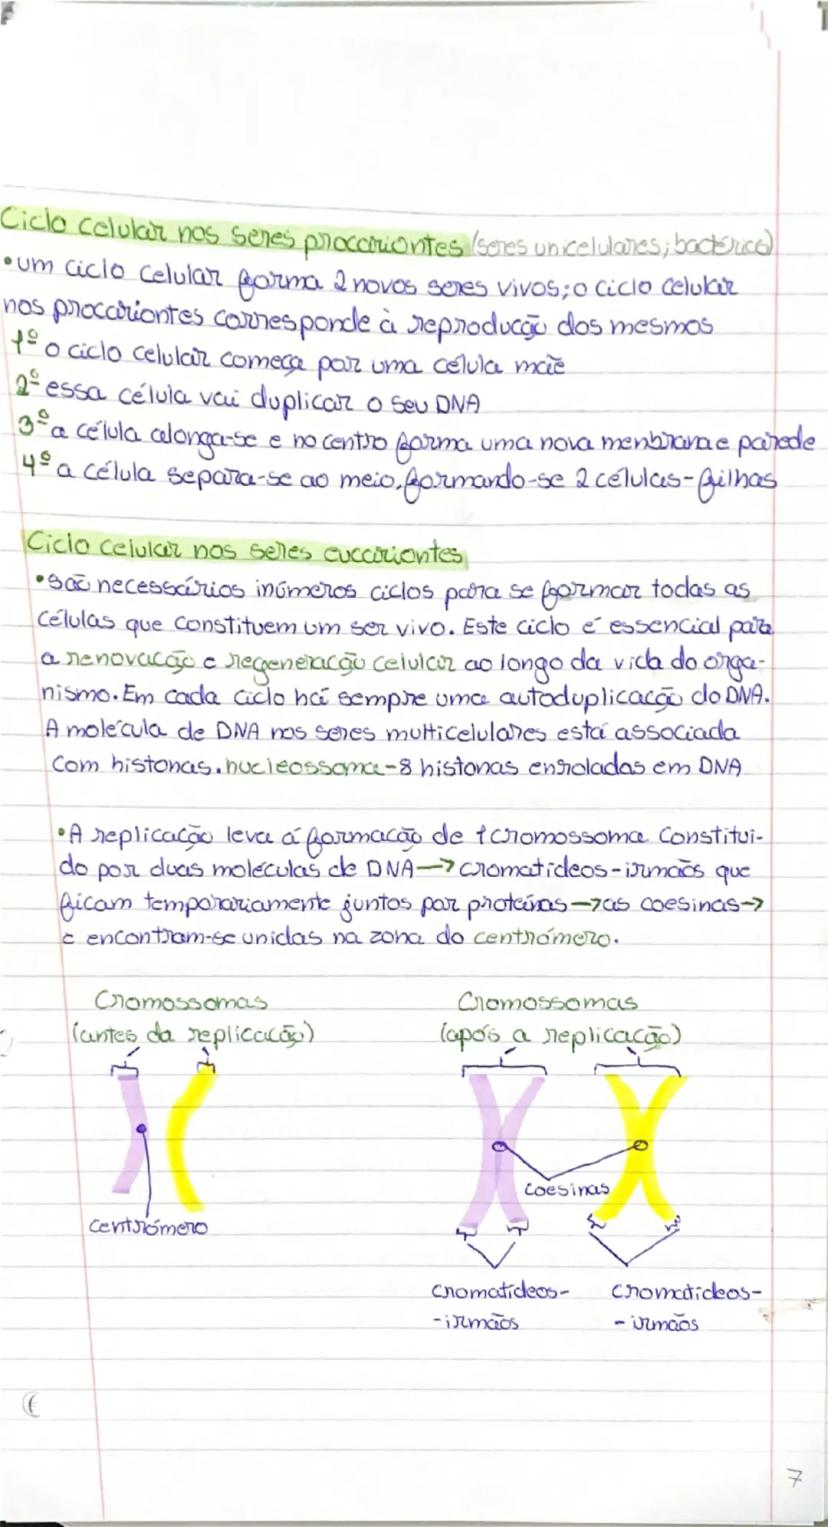 Ciclo celular nos seres procariontes (seres unicelulares; bactérias)
• um ciclo celular forma 2 novos seres vivos; o ciclo celular
nos procariontes corresponde à reprodução dos mesmos
1º o ciclo celular começa por uma célula mãe
2º essa célula vai duplicar o seu DNA
3º a célula alonga-se e no centro forma uma nova menbrana e parede
4º a célula separa-se ao meio, formando-se 2 células-filhas
Ciclo celular nos seres eucariontes
• são necessários inúmeros ciclos para se formar todas as
células que constituem um ser vivo. Este ciclo é essencial para
a renovação e regeneração celular ao longo da vida do orga-
nismo. Em cada ciclo há sempre uma autoduplicação do DNA.
A molécula de DNA nos seres multicelulares está associada
com histonas. nucleossoma - 8 histonas enroladas em DNA
• A replicação leva á formação de 1 cromossoma constitui-
do por duas moléculas de DNA → cromatídeos-irmãos que
ficam temporariamente juntos por proteínas → as coesinas →
e encontram-se unidas na zona do centrómero.
Cromossomas
(antes da replicação)
centrómero
Cromossomas
(após a replicação)
coesinas
cromatídeos- cromatídeos-
-irmãos - irmãos
7